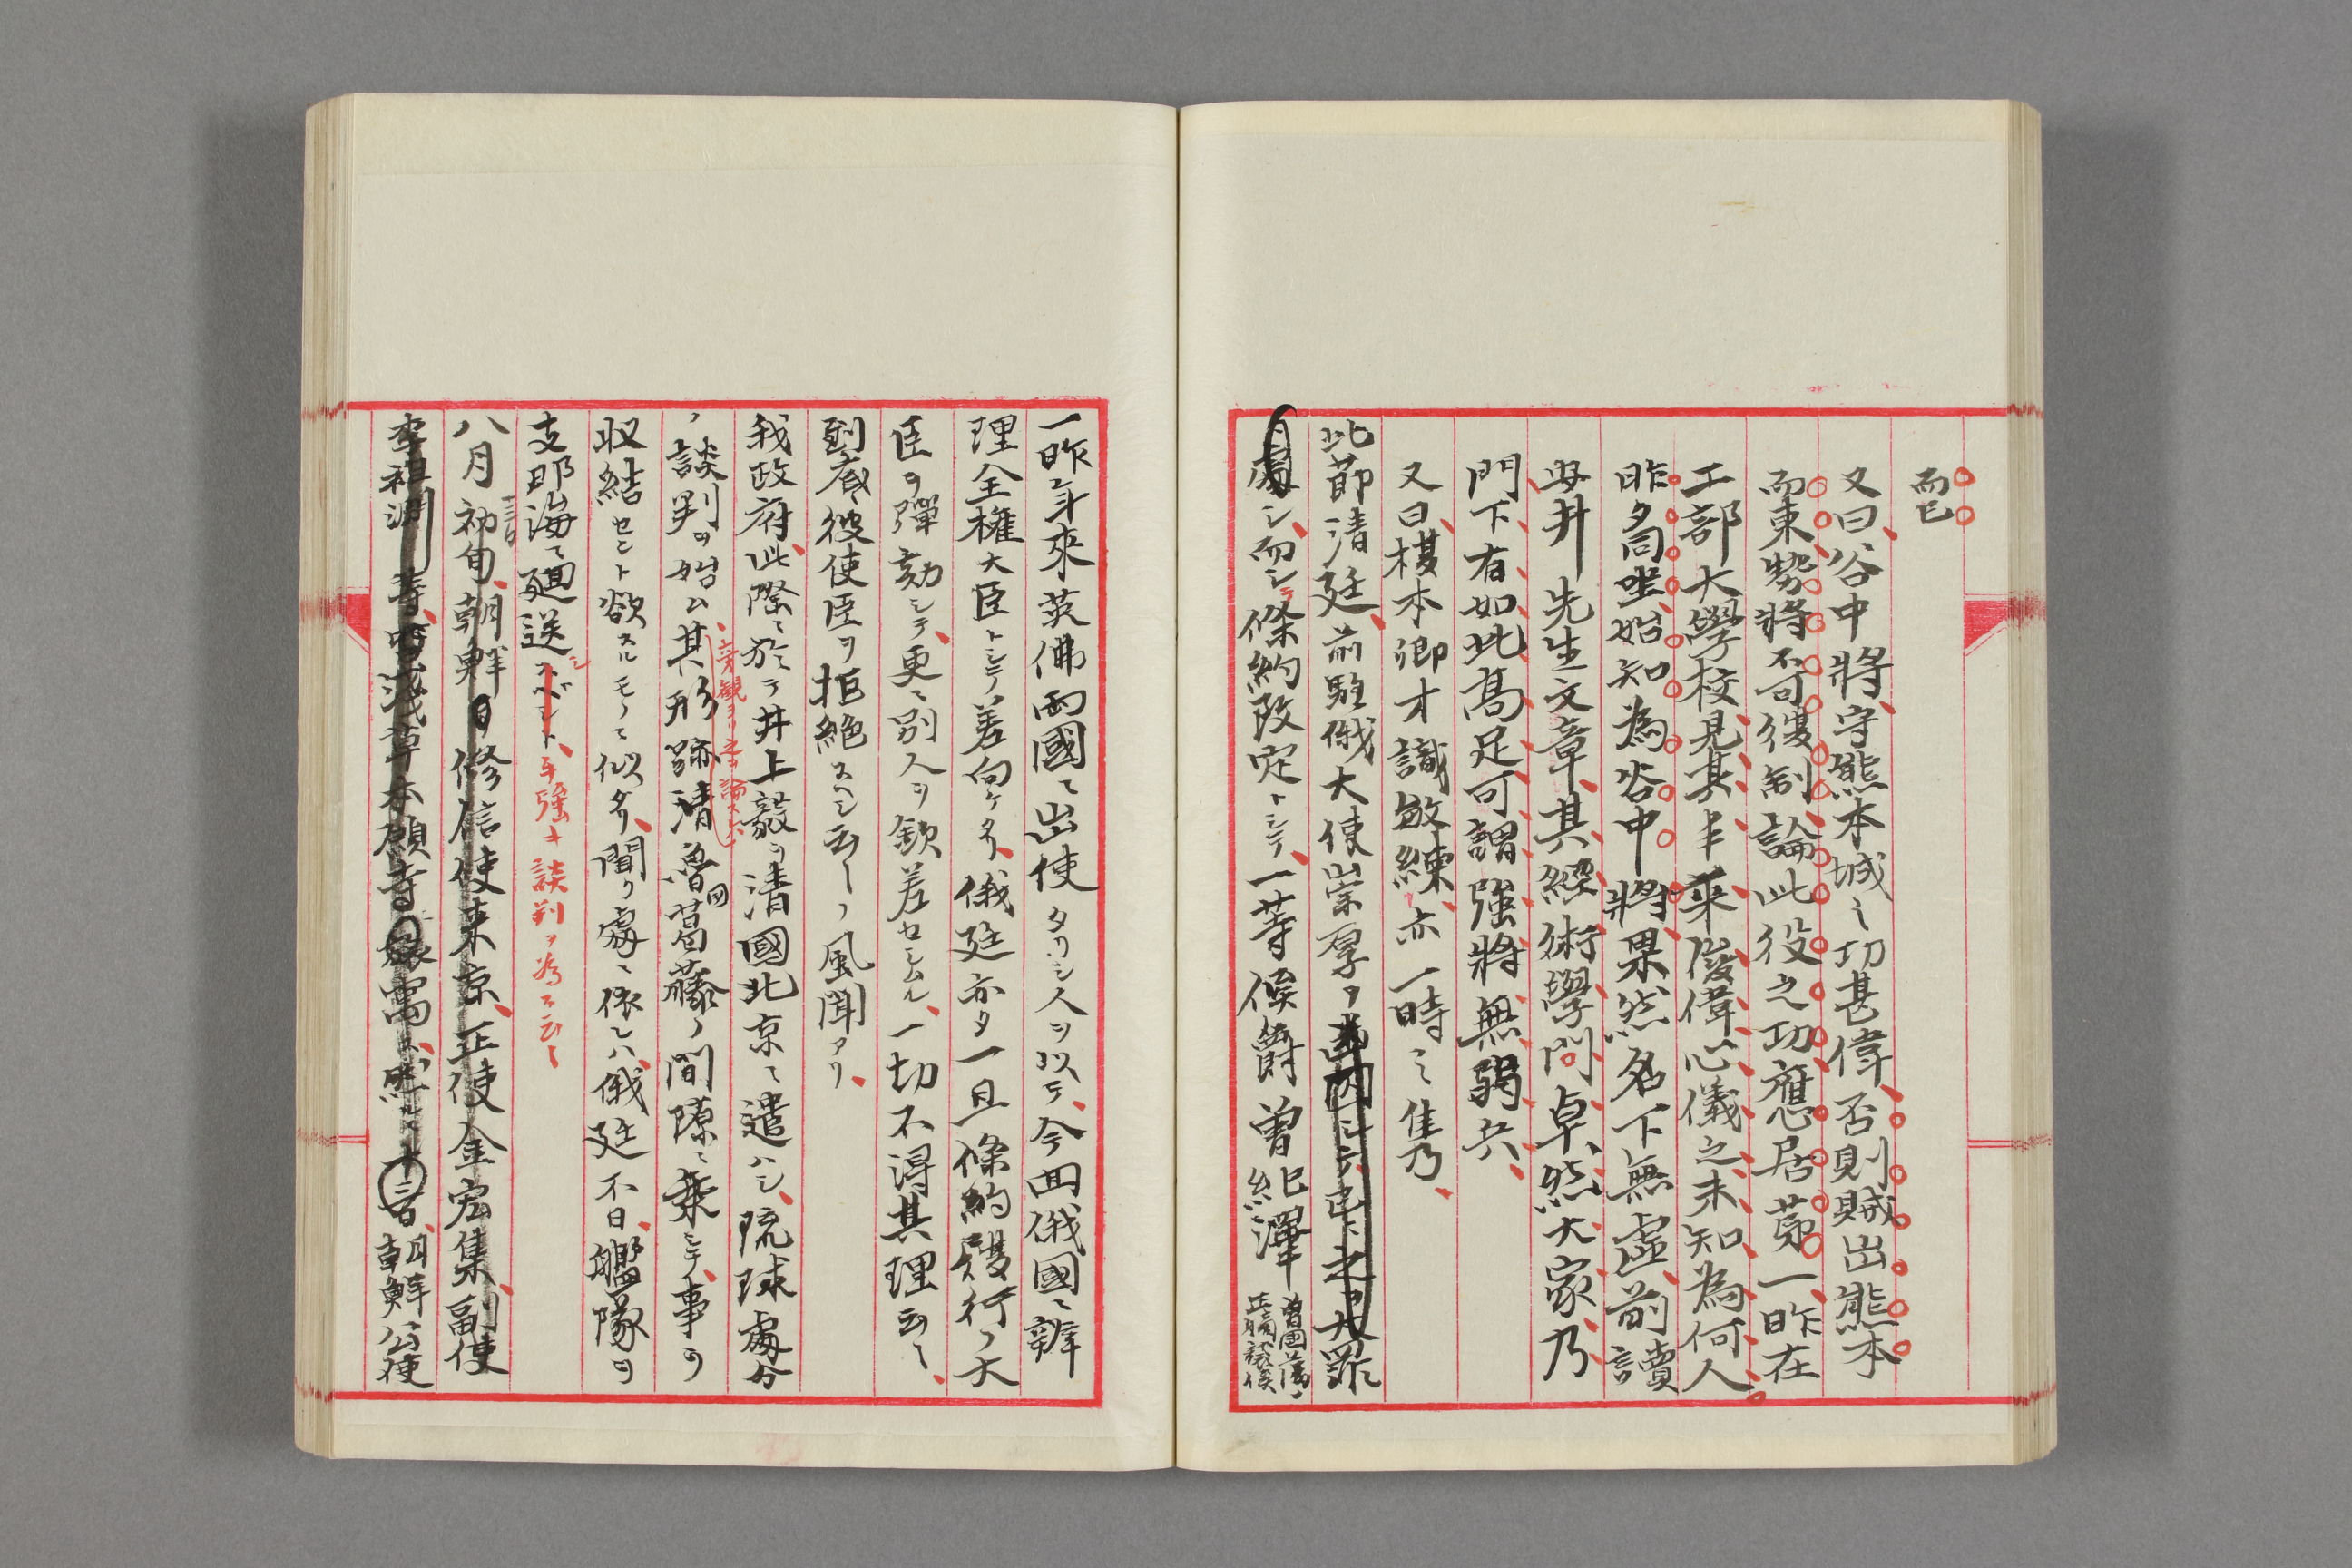 而已
又曰谷中將守熊本城之功甚偉否則賊出熊本
而東勢將不可復制論此役之功應居第一昨在
工部大學校見其丰采俊偉心儀之未知為何人
昨夕同坐始知為谷中將果然名下無虛前讀
安井先生文章其經術學問卓然大家乃
門下有如此高足可謂強將無弱兵
又曰榎本卿才識敏練亦一時之隽乃
此節清廷前駐俄大使崇厚ヲ大罪
處シ而シテ條約改定トシテ一等侯爵曾紀澤
曾國藩ノ
一昨年來英佛両國ニ出使タリシ人ヲ以テ今回俄國ニ辦
理全權大臣トシテ差向ケタリ俄廷亦タ一旦條約殘行ノ大
臣ヲ彈劾シテ更ニ別人ヲ欽差セシムル一切不得其理云々
到底彼使臣ヲ拒絶スヘシ云々ノ風聞アリ
我政府此際ニ於テ井上毅ヲ清國北京ニ遣ハシ琉球處分
ノ談判ヲ始ム其形跡清魯國葛藤ノ間隙ニ乗シテ事ヲ
旁観ヨリ之ヲ論スレハ
収結セント欲スルモノニ似タリ聞ク處ニ依レハ俄廷不日艦隊ヲ
支那海ニ廻送シスベシト手強キ談判ヲ為ス云々
八月初旬朝鮮日修信使来京正使金宏集副使
李祖淵等浅草本願寺寓ス十三日朝鮮公使